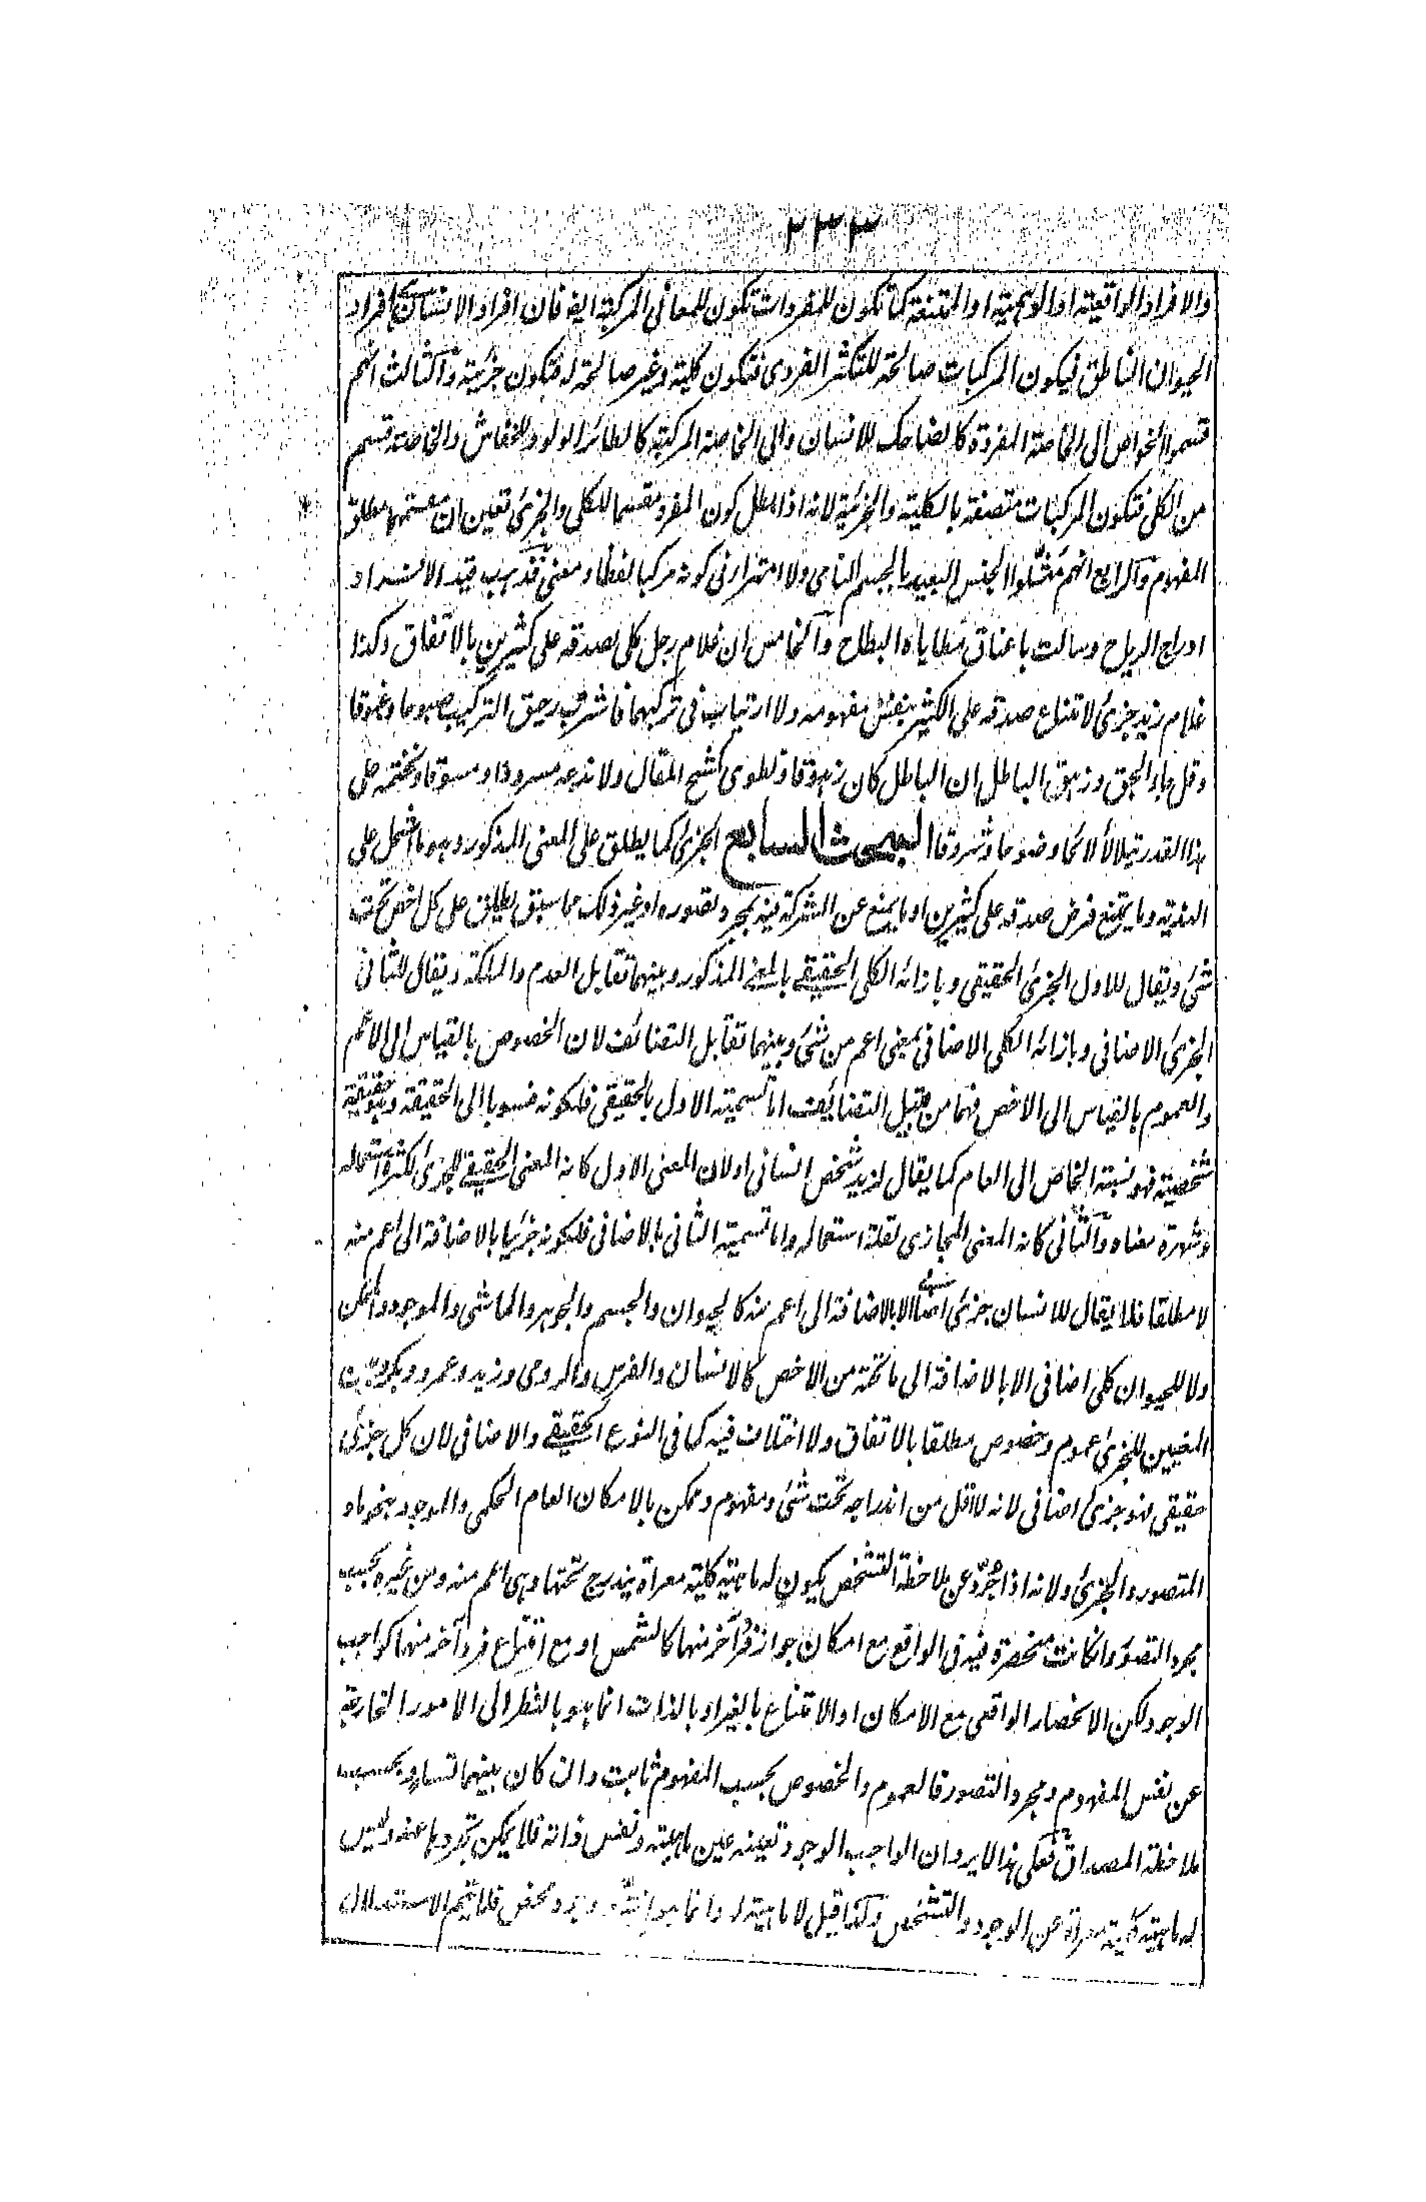 ٢٣٣
والافراد الواقعية او الوهمية او الممتنعة كما تكون للمفردات تكون للمعانى المركبة ايضا فان افراد الانسان افراد
الحيوان الناطق فيكون المركبات صالحة للتكثر الفردى فتكون كلية وغير صالحة له فتكون جزئية والثالث انهم
قسموا الخواص الى الخاصة المفردة كالضاحك للانسان والى الخاصة المركبة كالطائر الولود للخفاش والخاصة قسم
من الكلى فتكون المركبات متصفة بالكلية والجزئية لانه اذا بطل كون المفرد مقسما للكلى والجزئى تعين ان مقسمهما مطلق
المفهوم والرابع انهم مثلوا الجنس البعيد بالجسم النامى ولا امتراء فى كونه مركبا لفظا ومعنى فقد ذهب قيد الافراد
ادراج الرياح وسالت باعناق مطاياه البطاح والخامس ان غلام رجل كلى لصدقه على كثيرين بالاتفاق وكذا
غلام زيد جزئى لامتناع صدقه على الكثير بنفس مفهومه ولا ارتياب فى تركبهما فاشرب رحيق التركيب صبوحا وغبوقا
وقل جاء الحق وزهق الباطل ان الباطل كان زهوقا ونطوى كشح المقال ولا ندعه مسرودا ومسوقا ونختمه على
هذا القدر تيلألأ لائحا وضوحا وشروقا البحث السابع الجزئى كما يطلق على المعنى المذكور وهو ما اشتمل على
الهذية وما يمتنع فرض صدقه على كثيرين او ما يمنع عن الشركة فيه بمجرد تصوره او غير ذلك مما سبق يطلق على كل اخص تحت
شئ ويقال للاول الجزئى الحقيقى وبازائه الكلى الحقيقى بالمعنى المذكور وبينهما تقابل العدم والملكة ويقال للثانى
الجزئى الاضافى وبازائه الكلى الاضافى بمعنى اعم من شئ وبينهما تقابل التضائف لان الخصوص بالقياس الى الاعم
والعموم بالقياس الى الاخص فهما من قبيل التضائف اما تسمية الاول بالحقيقى فلكونه منسوبا الى الحقيقة وهو حقيقة
شخصية فهو نسبة الخاص الى العام كما يقال لزيد شخص انسانى او لان المعنى الاول كانه المعنى الحقيقى للجزئى لكثرة استعماله
وشهرة معناه والثانى كانه المعنى المجازى لقلة استعماله واما تسمية الثانى بالاضافى فلكونه جزئيا بالاضافة الى اعم منه
لا مطلقا فلا يقال للانسان جزئى اضافى الا بالاضافة الى اعم منه كالحيوان والجسم والجوهر والماشى والموجود والممكن
ولا للحيوان كلى اضافى الا بالاضافة الى ما تحته من الاخص كالانسان والفرس والرومى وزيد وعمرو وبكر وبين
المعنيين للجزئى عموم وخصوص مطلقا بالاتفاق ولا اختلاف فيه كما فى النوع الحقيقى والاضافى لان كل جزئى
حقيقى فهو جزئى اضافى لانه لا اقل من اندراجه تحت شئ ومفهوم وممكن بالامكان العام الحكمى والموجود بنحو ما و
المتصور والجزئى ولانه اذا جرد عن ملاحظة التشخص يكون له ماهية كلية معراة يندرج تحتها وهى اعم منه ومن غيره بحسب
مجرد التصور وان كانت منحصرة فيه فى الواقع مع امكان جواز فرد آخر منها كالشمس او مع امتناع فرد آخر منها كواجب
الوجود لكن الانحصار الواقعى مع الامكان او الامتناع بالغير او بالذات انما هو بالنظر الى الامور الخارجة
عن نفس المفهوم ومجرد التصور فالعموم والخصوص بحسب المفهوم ثابت وان كان بينهما تساو بحسب
ملاحظة المصداق فعلى هذا لا يرد ان الواجب الوجود تعينه عين ماهيته ونفس ذاته فلا يمكن تجردها عنه وليس
له ماهية كلية معراة عن الوجود والتشخص وكذا قيل لا ماهية له وانما هو وجود محض فلا يتم الاستدلال